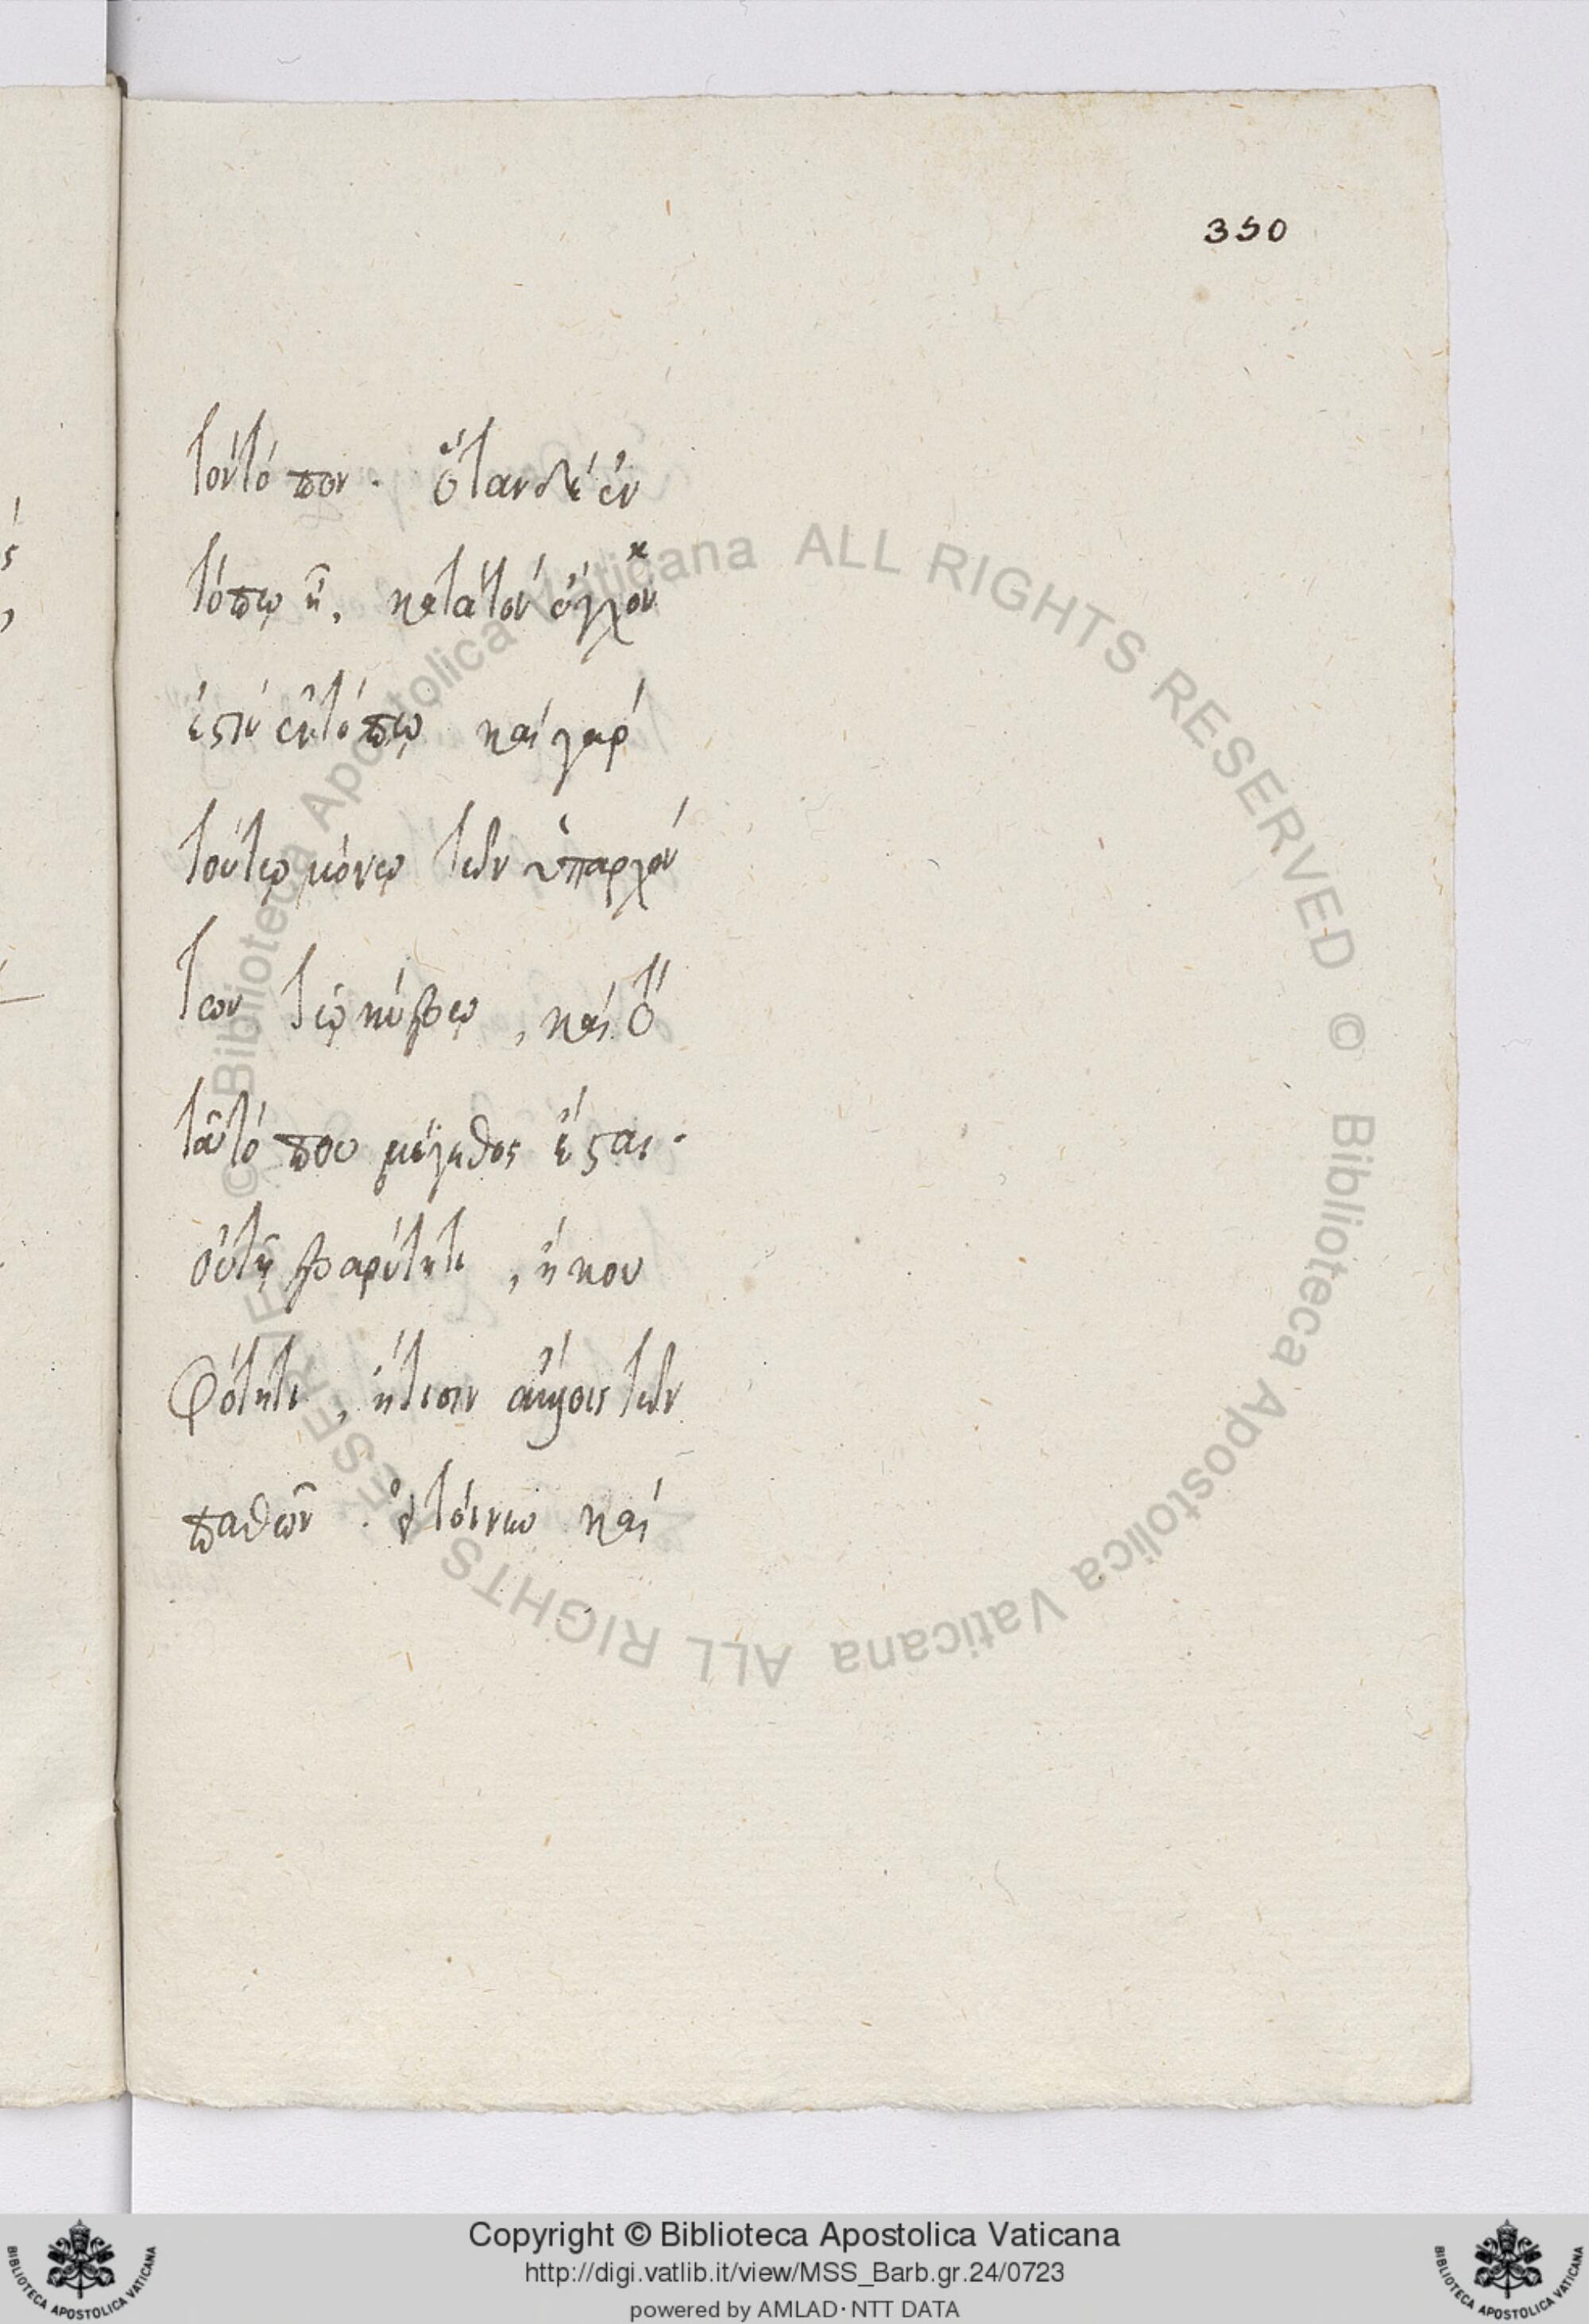 350
τὸν τόπον. ὅταν δὲ ἐν
τόπῳ ᾖ, κατὰ τὸν ὄγκον
ἐστὶν ἐν τόπῳ καὶ γὰρ
τούτῳ μόνῳ τῶν ὑπαρχόν
των τῷ κύβῳ, καὶ ὁ
τοῦ τόπου μέγεθος ἔσται.
οὐ τῇ βαρύτητι, ἢ κου
φότητι, ἤ τισιν ἄλλοις τῶν
παθῶν. εἰ τοίνυν καὶ
© Biblioteca Apostolica Vaticana ALL RIGHTS RESERVED © Biblioteca Apostolica Vaticana ALL RIGHTS RESERVED
Copyright © Biblioteca Apostolica Vaticana
http://digi.vatlib.it/view/MSS_Barb.gr.24/0723
powered by AMLAD·NTT DATA
BIBLIOTECA APOSTOLICA VATICANA
BIBLIOTECA APOSTOLICA VATICANA